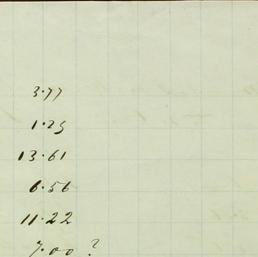 3.77
1.25
13.61
6.56
11.22
7.00 ?